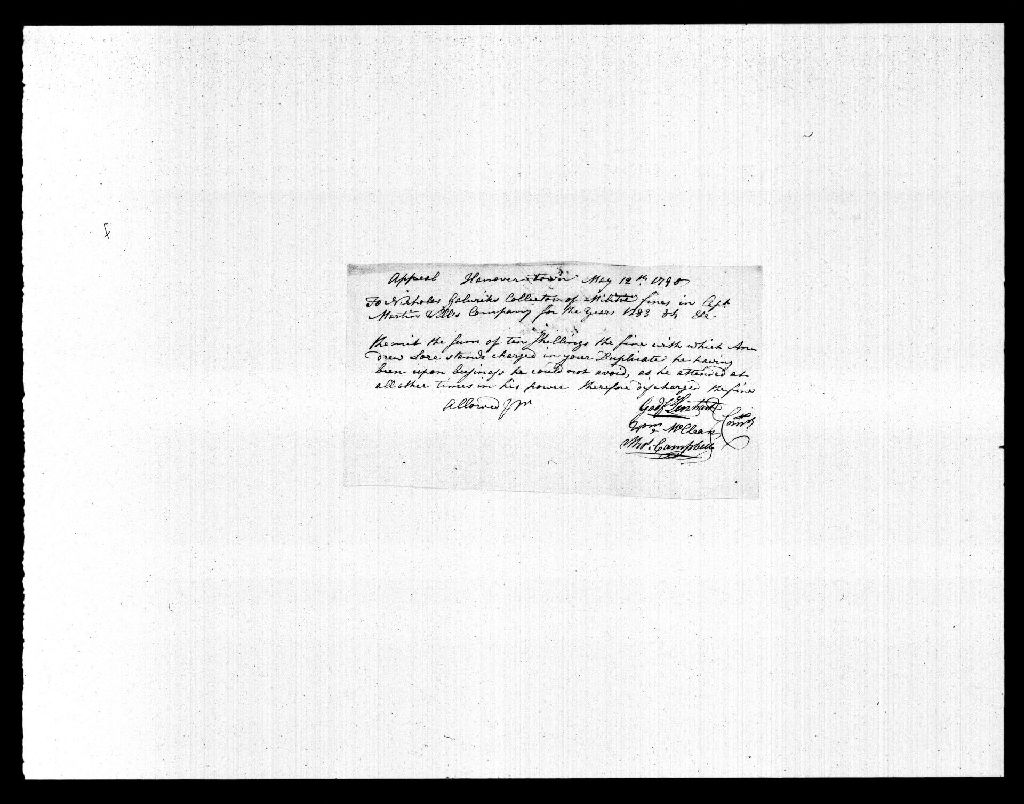 Appeal Hanover town May 12th 1790
To Nicholas Gelwicks Collector of Militia fines in Capt
Martin Company for the Years 1783 84 &c.
Remit the sum of ten Shillings the fine with which An
drew stands charged in your Duplicate he having
been upon business he could not avoid, as he attended at
all other times in his power therefore discharge the fine
Allowed
Godf Linhart
Wm McClean Comrs
Thos. Campbell